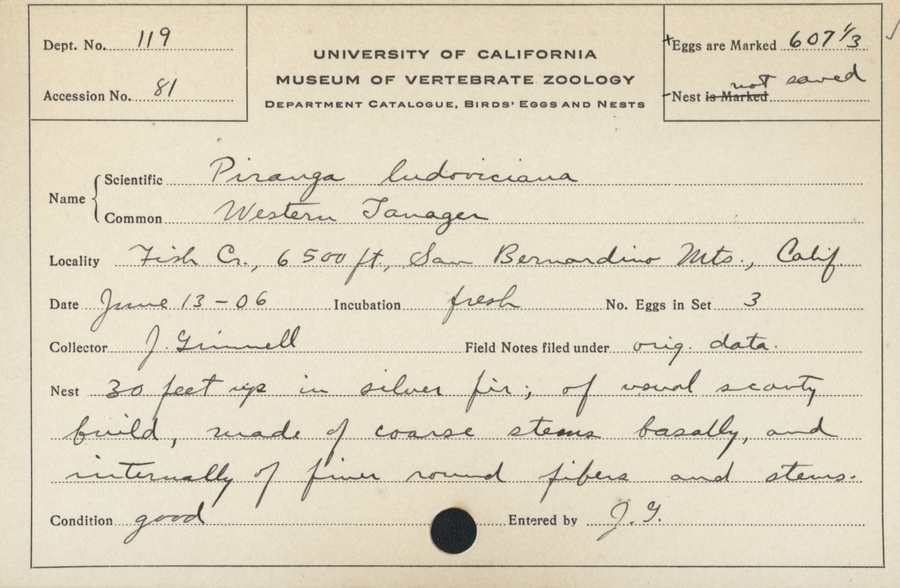 Dept. No. 119
Accession No. 81
UNIVERSITY OF CALIFORNIA
MUSEUM OF VERTEBRATE ZOOLOGY
DEPARTMENT CATALOGUE, BIRDS' EGGS AND NESTS
+Eggs are Marked 607 1/3
-Nest is Marked not saved
Name
Scientific Piranga ludoviciana
Common Western Tanager
Locality Fish Cr., 6500 ft., San Bernardino Mts., Calif.
Date June 13-06 Incubation fresh No. Eggs in Set 3
Collector J. Grinnell Field Notes filed under orig. data.
Nest 30 feet up in silver fir; of usual scanty
build, made of coarse stems basally, and
internally of finer round fibers and stems.
Condition good Entered by J. G.